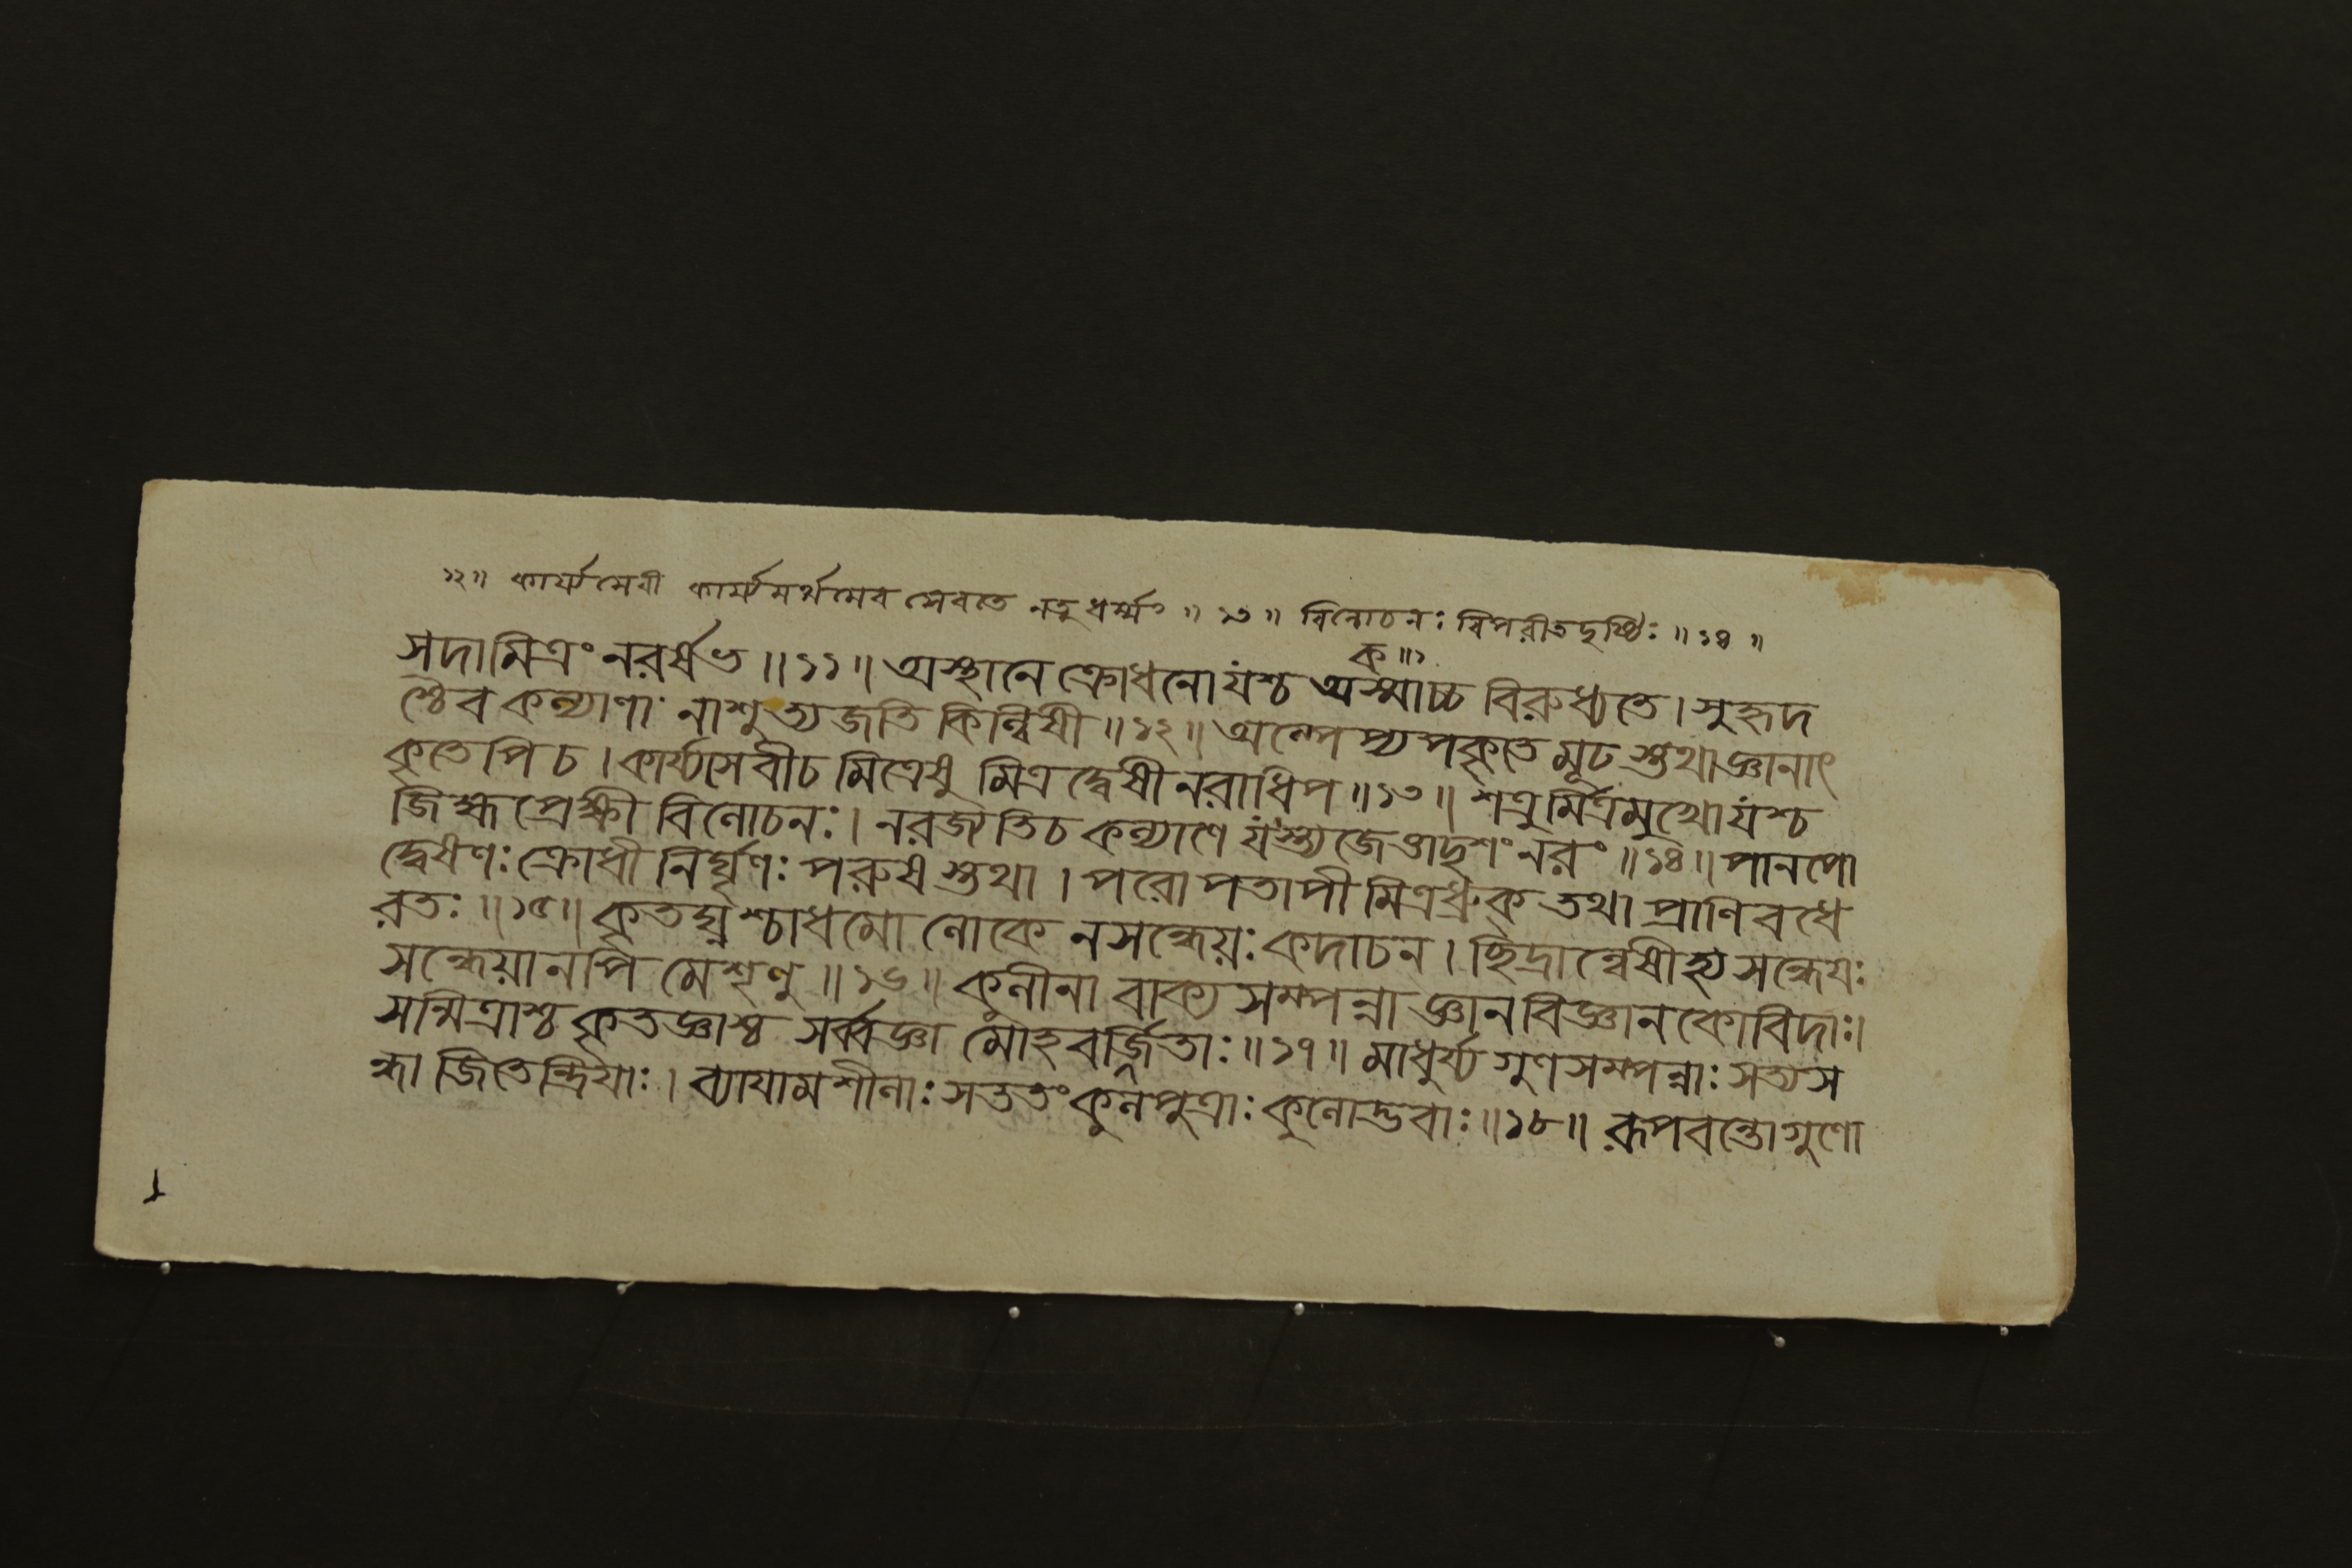 ১২॥ কার্য্যসেবী কার্য্যমর্থমেব সেবতে নতু ধর্ম্মং ॥ ১৩ ॥ বিলোচনঃ বিপরীতদৃষ্টিঃ ॥ ১৪ ॥
ক ॥১
সদামিত্রং নরর্ষভ ॥ ১১ ॥ অস্থানে ক্রোধনোযশ্চ অস্মাচ্চ বিরুধ্যতে । সুহৃদ
শ্চৈব কল্যাণা নাশুত্যজতি কিল্বিষী ॥ ১২ ॥ অল্পেপ্যপকৃতে মূঢ স্তথাজ্ঞানাৎ
কৃতেপি চ । কার্য্যসেবীচ মিত্রেষু মিত্রদ্বেষী নরাধিপ ॥ ১৩ ॥ শত্রুর্মিত্রমুখোযশ্চ
জিহ্মপ্রেক্ষী বিলোচনঃ । নরজ্যতিচ কল্যাণে যস্ত্যজেত্তাদৃশং নরং ॥ ১৪ ॥ পানপো
দ্বেষণঃ ক্রোধী নির্ঘৃণঃ পরুষ স্তথা । পরোপতাপী মিত্রধ্রুক্ তথা প্রাণিবধে
রতঃ ॥ ১৫ ॥ কৃতঘ্নশ্চাধমো লোকে নসন্ধেয়ঃ কদাচন । ছিদ্রান্বেষীহ্য সন্ধেযঃ
সন্ধেয়ানপি মেশৃণু ॥ ১৬ ॥ কুলীনা বাক্য সম্পন্না জ্ঞানবিজ্ঞানকোবিদাঃ ।
সন্মিত্রাশ্চ কৃতজ্ঞাশ্চ সর্ব্বজ্ঞা মোহবর্জ্জিতাঃ ॥ ১৭ ॥ মাধুর্য্য গুণসম্পন্নাঃ সত্যস
ন্ধা জিতেন্দ্রিযাঃ । ব্যাযামশীলাঃ সততং কুলপুত্রাঃ কুলোদ্ভবাঃ ॥ ১৮ ॥ রূপবন্তোগুণো